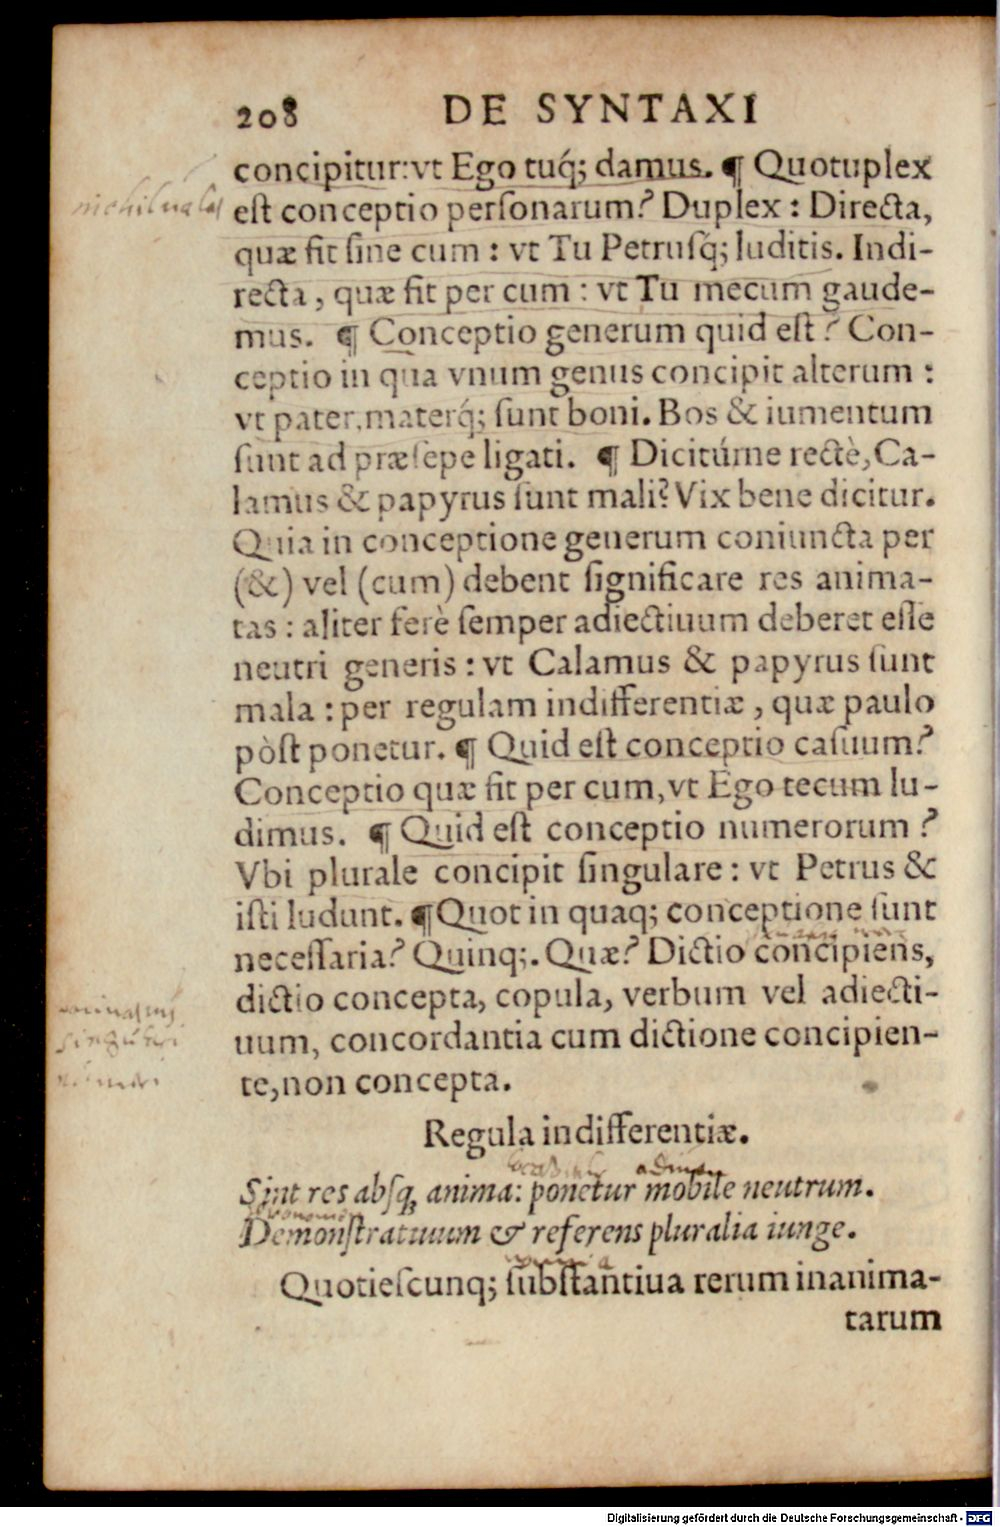 208 DE SYNTAXI
concipitur: vt Ego tuq́; damus. ¶ Quotuplex
est conceptio personarum? Duplex : Directa,
quæ fit sine cum : vt Tu Petrusq́; luditis. Indi-
recta, quæ fit per cum : vt Tu mecum gaude-
mus. ¶ Conceptio generum quid est? Con-
ceptio in qua vnum genus concipit alterum :
vt pater, materq́; sunt boni. Bos & iumentum
sunt ad præsepe ligati. ¶ Dicitúrne rectè, Ca-
lamus & papyrus sunt mali? Vix bene dicitur.
Quia in conceptione generum coniuncta per
(&) vel (cum) debent significare res anima-
tas : aliter ferè semper adiectiuum deberet esse
neutri generis : vt Calamus & papyrus sunt
mala : per regulam indifferentiæ, quæ paulo
pòst ponetur. ¶ Quid est conceptio casuum?
Conceptio quæ fit per cum, vt Ego tecum lu-
dimus. ¶ Quid est conceptio numerorum?
Vbi plurale concipit singulare : vt Petrus &
isti ludunt. ¶ Quot in quaq; conceptione sunt
necessaria? Quinq;. Quæ? Dictio concipiens,
dictio concepta, copula, verbum vel adiecti-
uum, concordantia cum dictione concipien-
te, non concepta.
Regula indifferentiæ.
Sint res absq, anima: ponetur mobile neutrum.
Demonstratiuum & referens pluralia iunge.
Quotiescunq; substantiua rerum inanima-
tarum
Digitalisierung gefördert durch die Deutsche Forschungsgemeinschaft - DFG